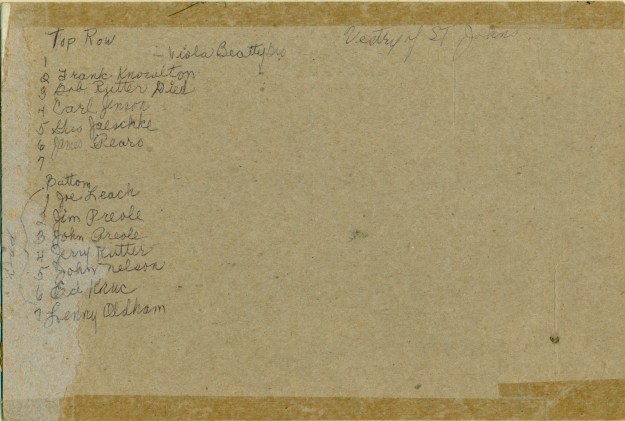 Top Row
Vestry of St John
1
– Viola Beatty
2 Frank Knowlton
3 Bob Ritter Died
4 Carl Jenson
5 Gus Jaeschke
6 James Pears
7
Buttom
1 Joe Leach
2 Jim Preole
3 John Preole
4 Jerry Rutter
5 John nelson
6 Ed Kruc
7 Lenny Oldham